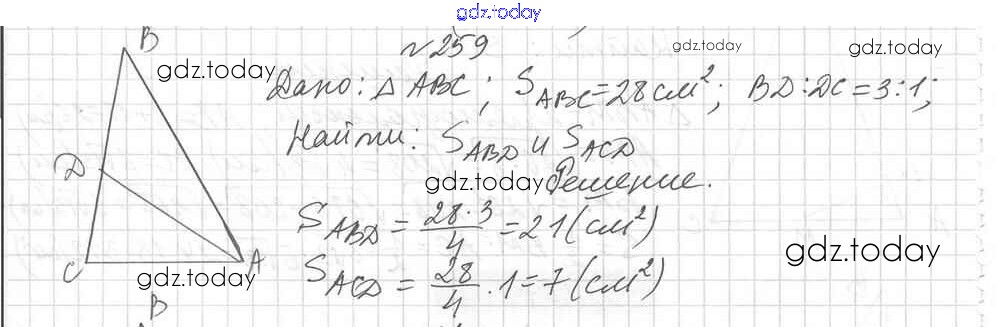 gdz.today
№259
gdz.today
gdz.today
B
gdz.today
Дано: △ABC; S_ABC=28см²; BD:DC=3:1;
Найти: S_ABD и S_ACD
D
gdz.today
Решение.
S_ABD = 28·3/4 = 21(см²)
gdz.today
C
A
gdz.today
S_ACD = 28/4 · 1=7(см²)
B